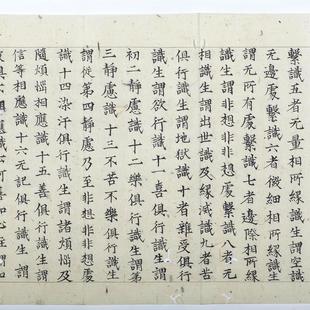 繫識五者无量相所緣識生謂空識
无邊處繫識六者微細相所緣識生
謂无所有處繫識七者邊際相所緣
識生謂非想非非想處繫識八者无
相識生謂出世識及緣滅識九者苦
俱行識生謂地獄識十者雜受俱行
識生謂欲行識十一喜俱行識生謂
初二靜慮識十二樂俱行識生謂第
三靜慮識十三不苦不樂俱行識生
謂從第四靜慮乃至非想非非想處
識十四染汙俱行識生謂諸煩惱及
隨煩惱相應識十五善俱行識生謂
信等相應識十六无記俱行識生謂